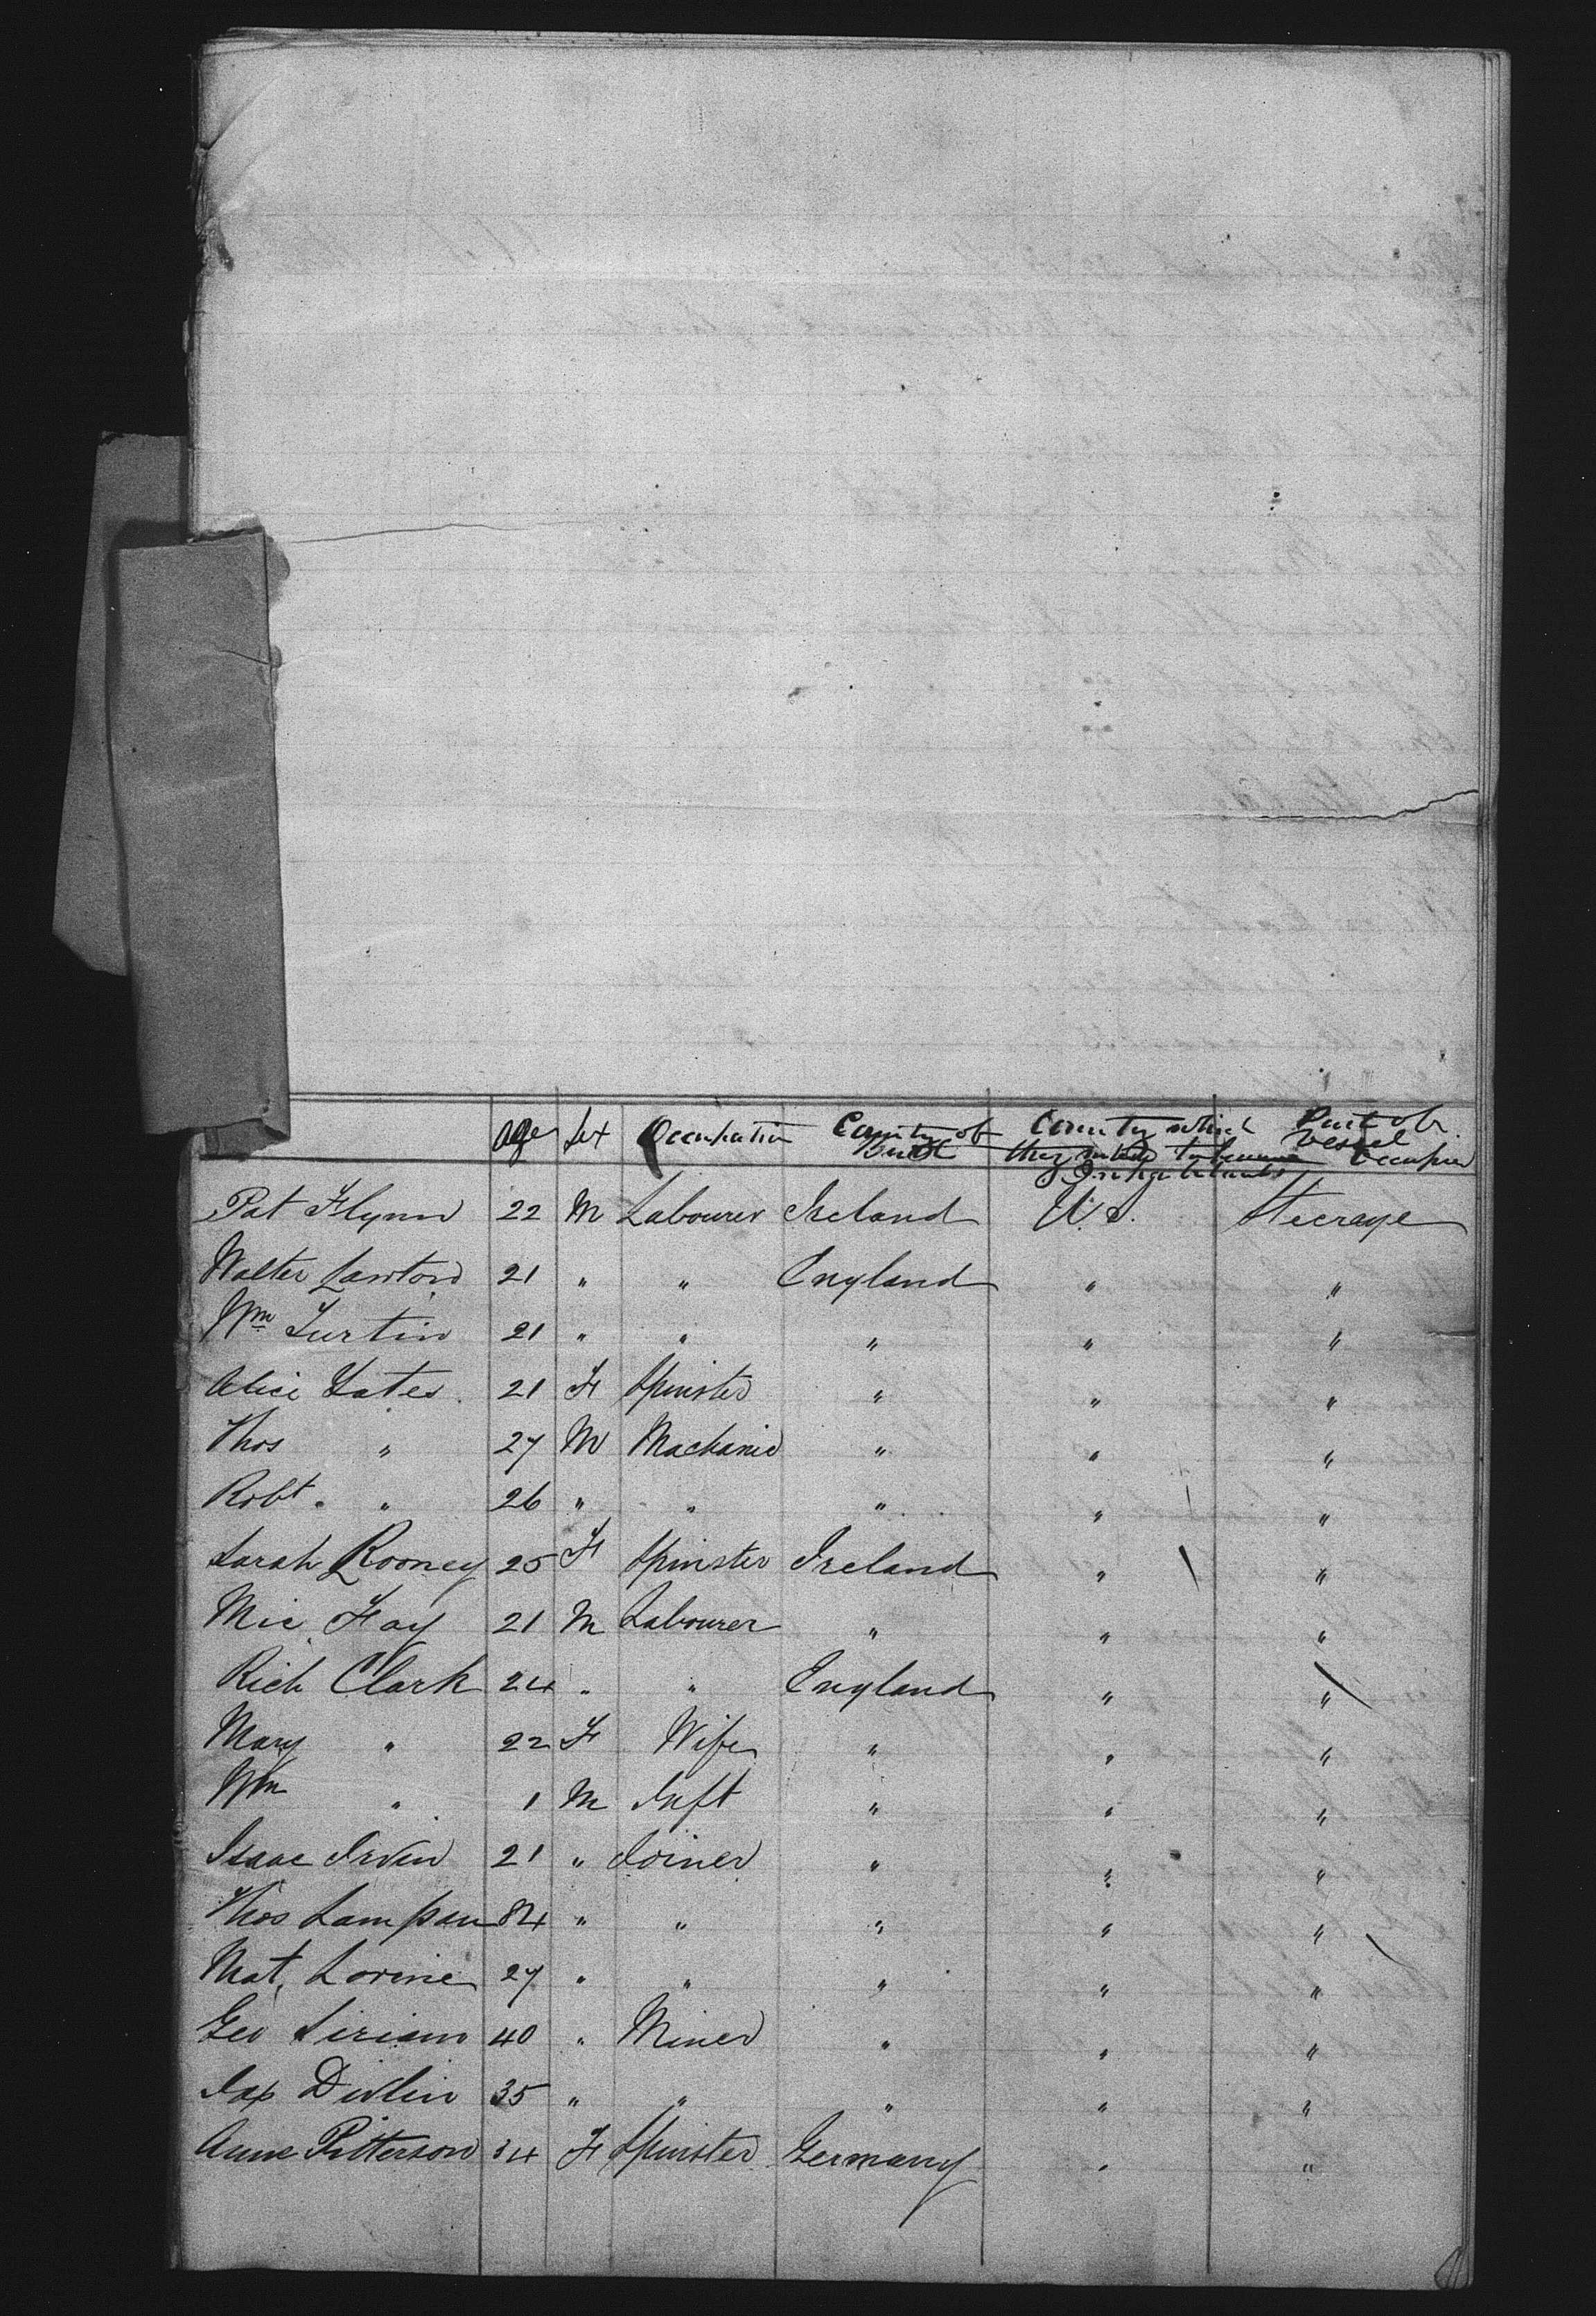 Age Sex Occupation County of Birth County which they intend to become Inhabitants Part of Vessel Occupied
Pat Flynn 22 M Labourer Ireland U.S. Steerage
Walter Lawton 21 " " England " "
Wm Turtin 21 " " " " "
Alice Yates 21 F Spinster " " "
Thos " 27 M Machanic " " "
Robt. " 26 " " " " "
Sarah Rooney 25 F Spinster Ireland " "
Mic Fay 21 M Labourer " " "
Rich Clark 24 " " England " "
Mary " 22 F Wife " " "
Wm " 1 M Inft " " "
Isaac Irvin 21 " Joiner " " "
Thos 84 " " " " "
Mat. Lorine 27 " " " " "
Geo 40 " Miner " " "
Jas Divlin 35 " " " " "
Anne Pitterson 34 F Spinster Germany " "